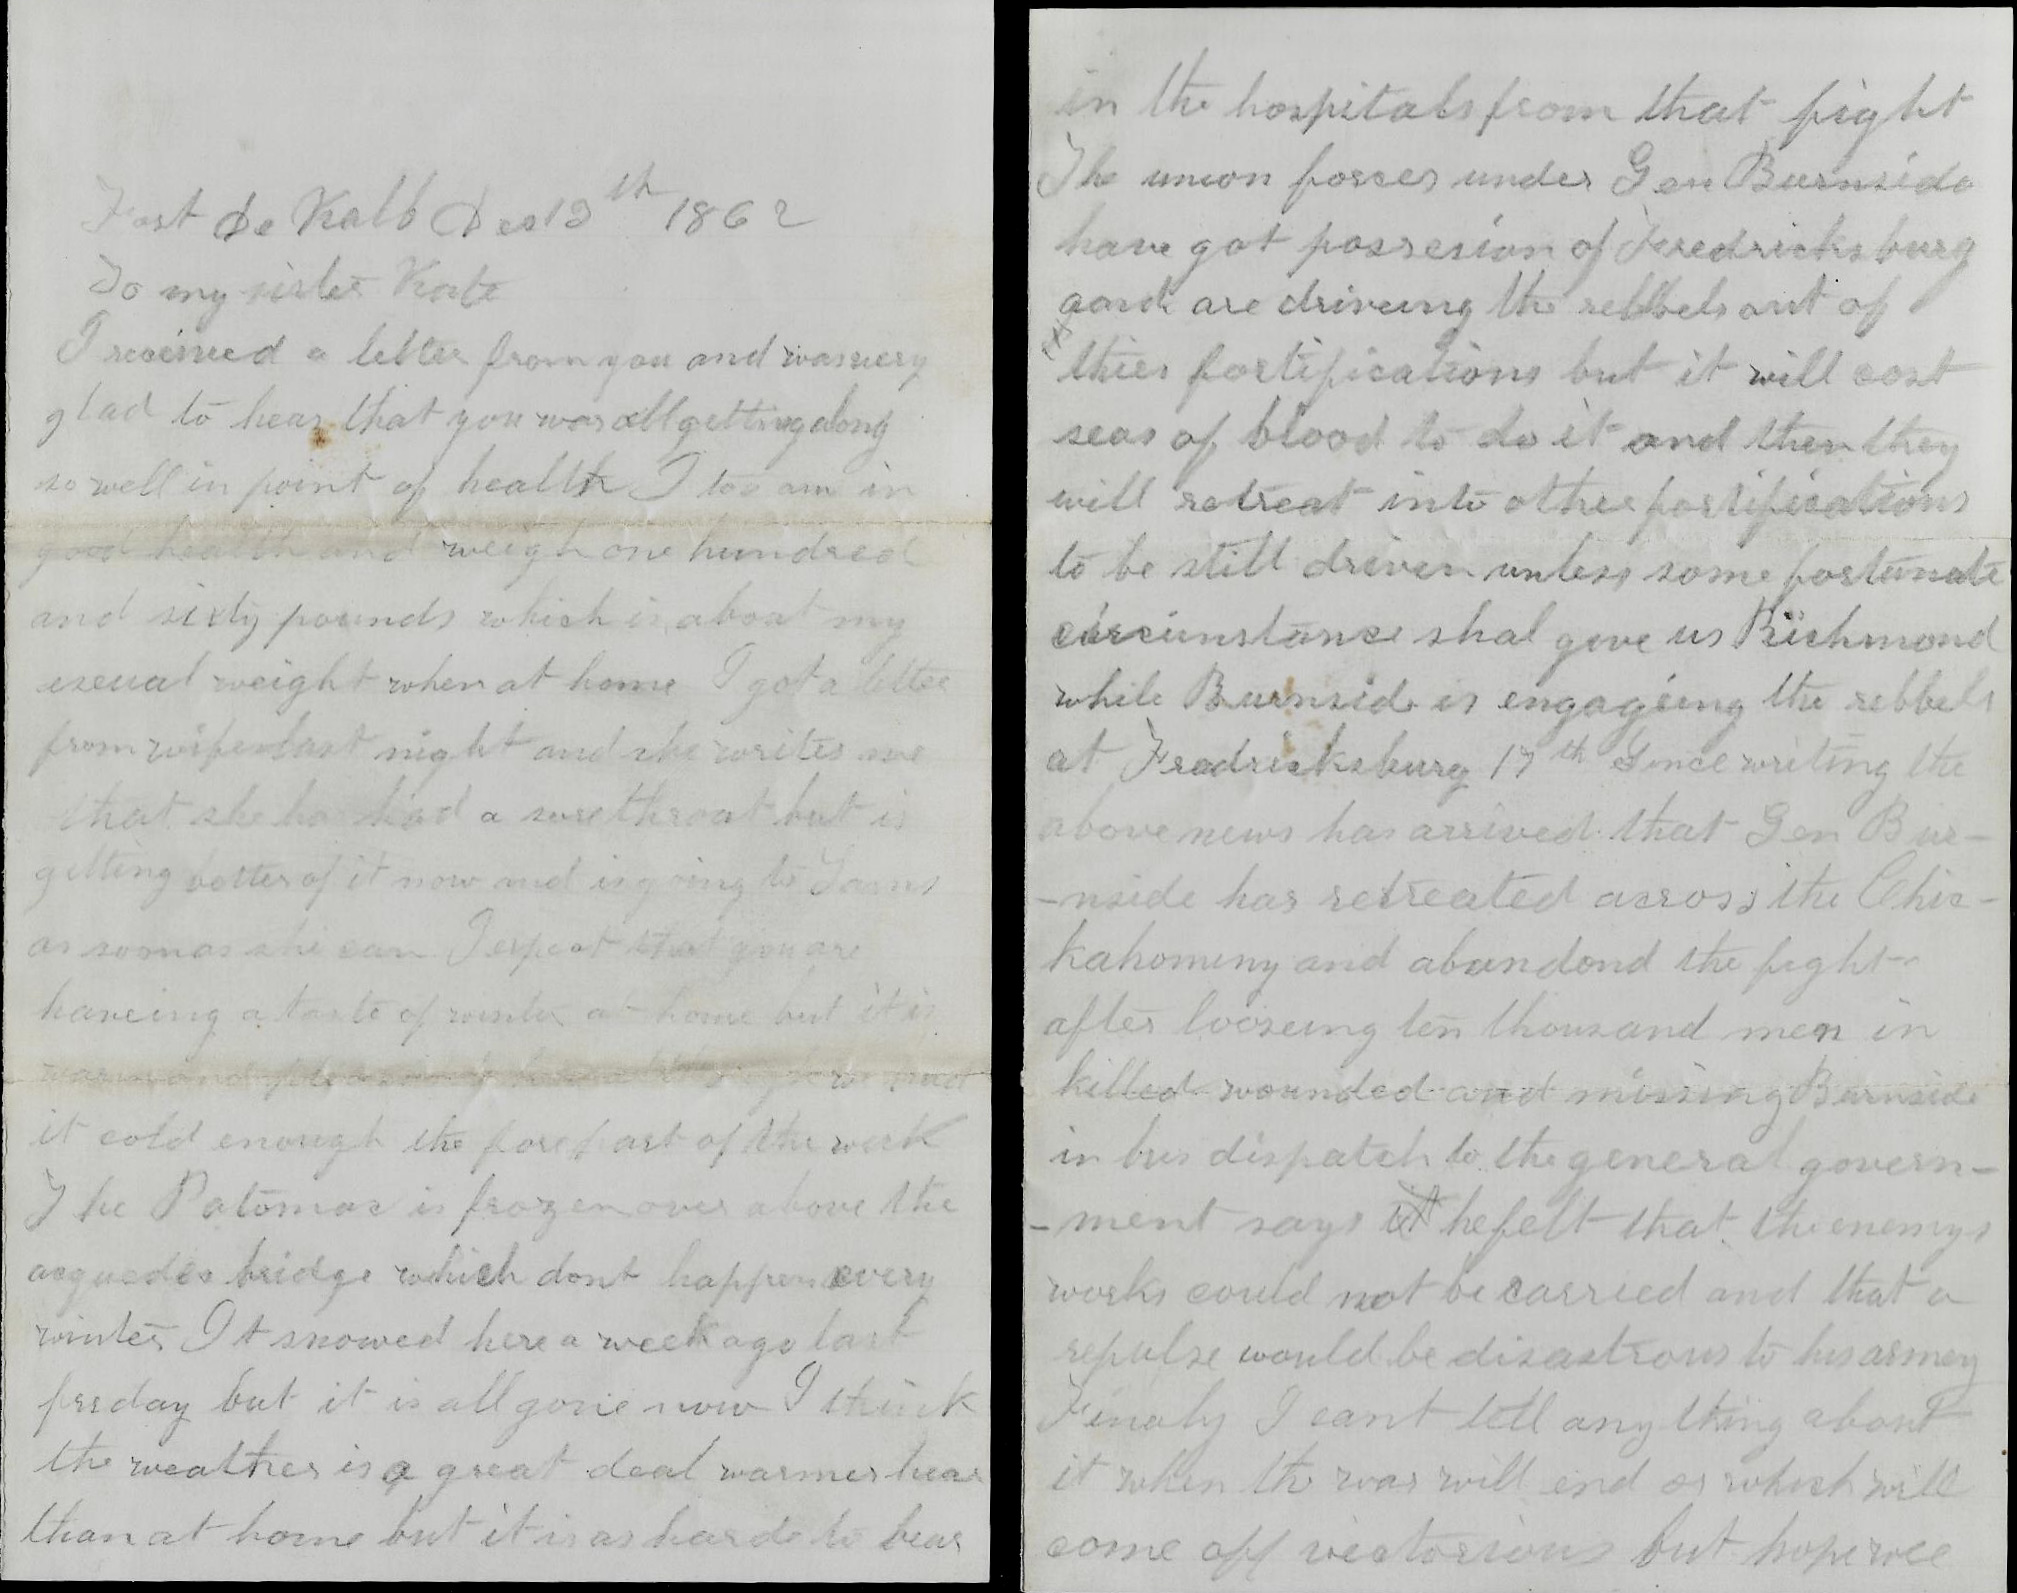 Fort De Kalb Dec 13th 1862
To my sister Kate
I receiued a letter from you and was very
glad to hear that you was all getting along
so well in point of health I too am in
good health and weigh one hundred
and sixty pounds which is about my
eseual weight when at home I got a letter
from wife last night and she writes me
that she has had a sore throat but is
getting better of it now and is going to
as soon as she can I expect that you are
haveing a taste of winter at home but it is
warm and
it cold enough the forepart of the week
The Patomac is frozen over above the
bridge which dont happen every
winter It snowed here a week ago last
friday but it is all gone now I think
the weather is a great deal warmer hear
than at home but it is as harde to bear
in the hospitals from that fight
The union forces under Gen Burnside
have got possesion of Fredricksburg
aand are driveing the rebbels out of
thier fortifications but it will cost
seas of blood to do it and then they
will retreat into other fortifications
to be still driven unless some fortunate
circumstance shal give us Richmond
while Burnside is engageing the rebbels
at Fredricksburg 17th Since writing the
above news has arrived that Gen Bur-
-nside has retreated across the Chic-
kahominy and abandond the fight
after looseing ten thousand men in
killed wounded and missing Burnside
in his dispatch to the general govern-
-ment says he felt that the enemys
works could not be carried and that a
repulse would be disastrous to his armey
Finaly I cant tell any thing about
it when the war will end or which will
come off victorious but hope wee